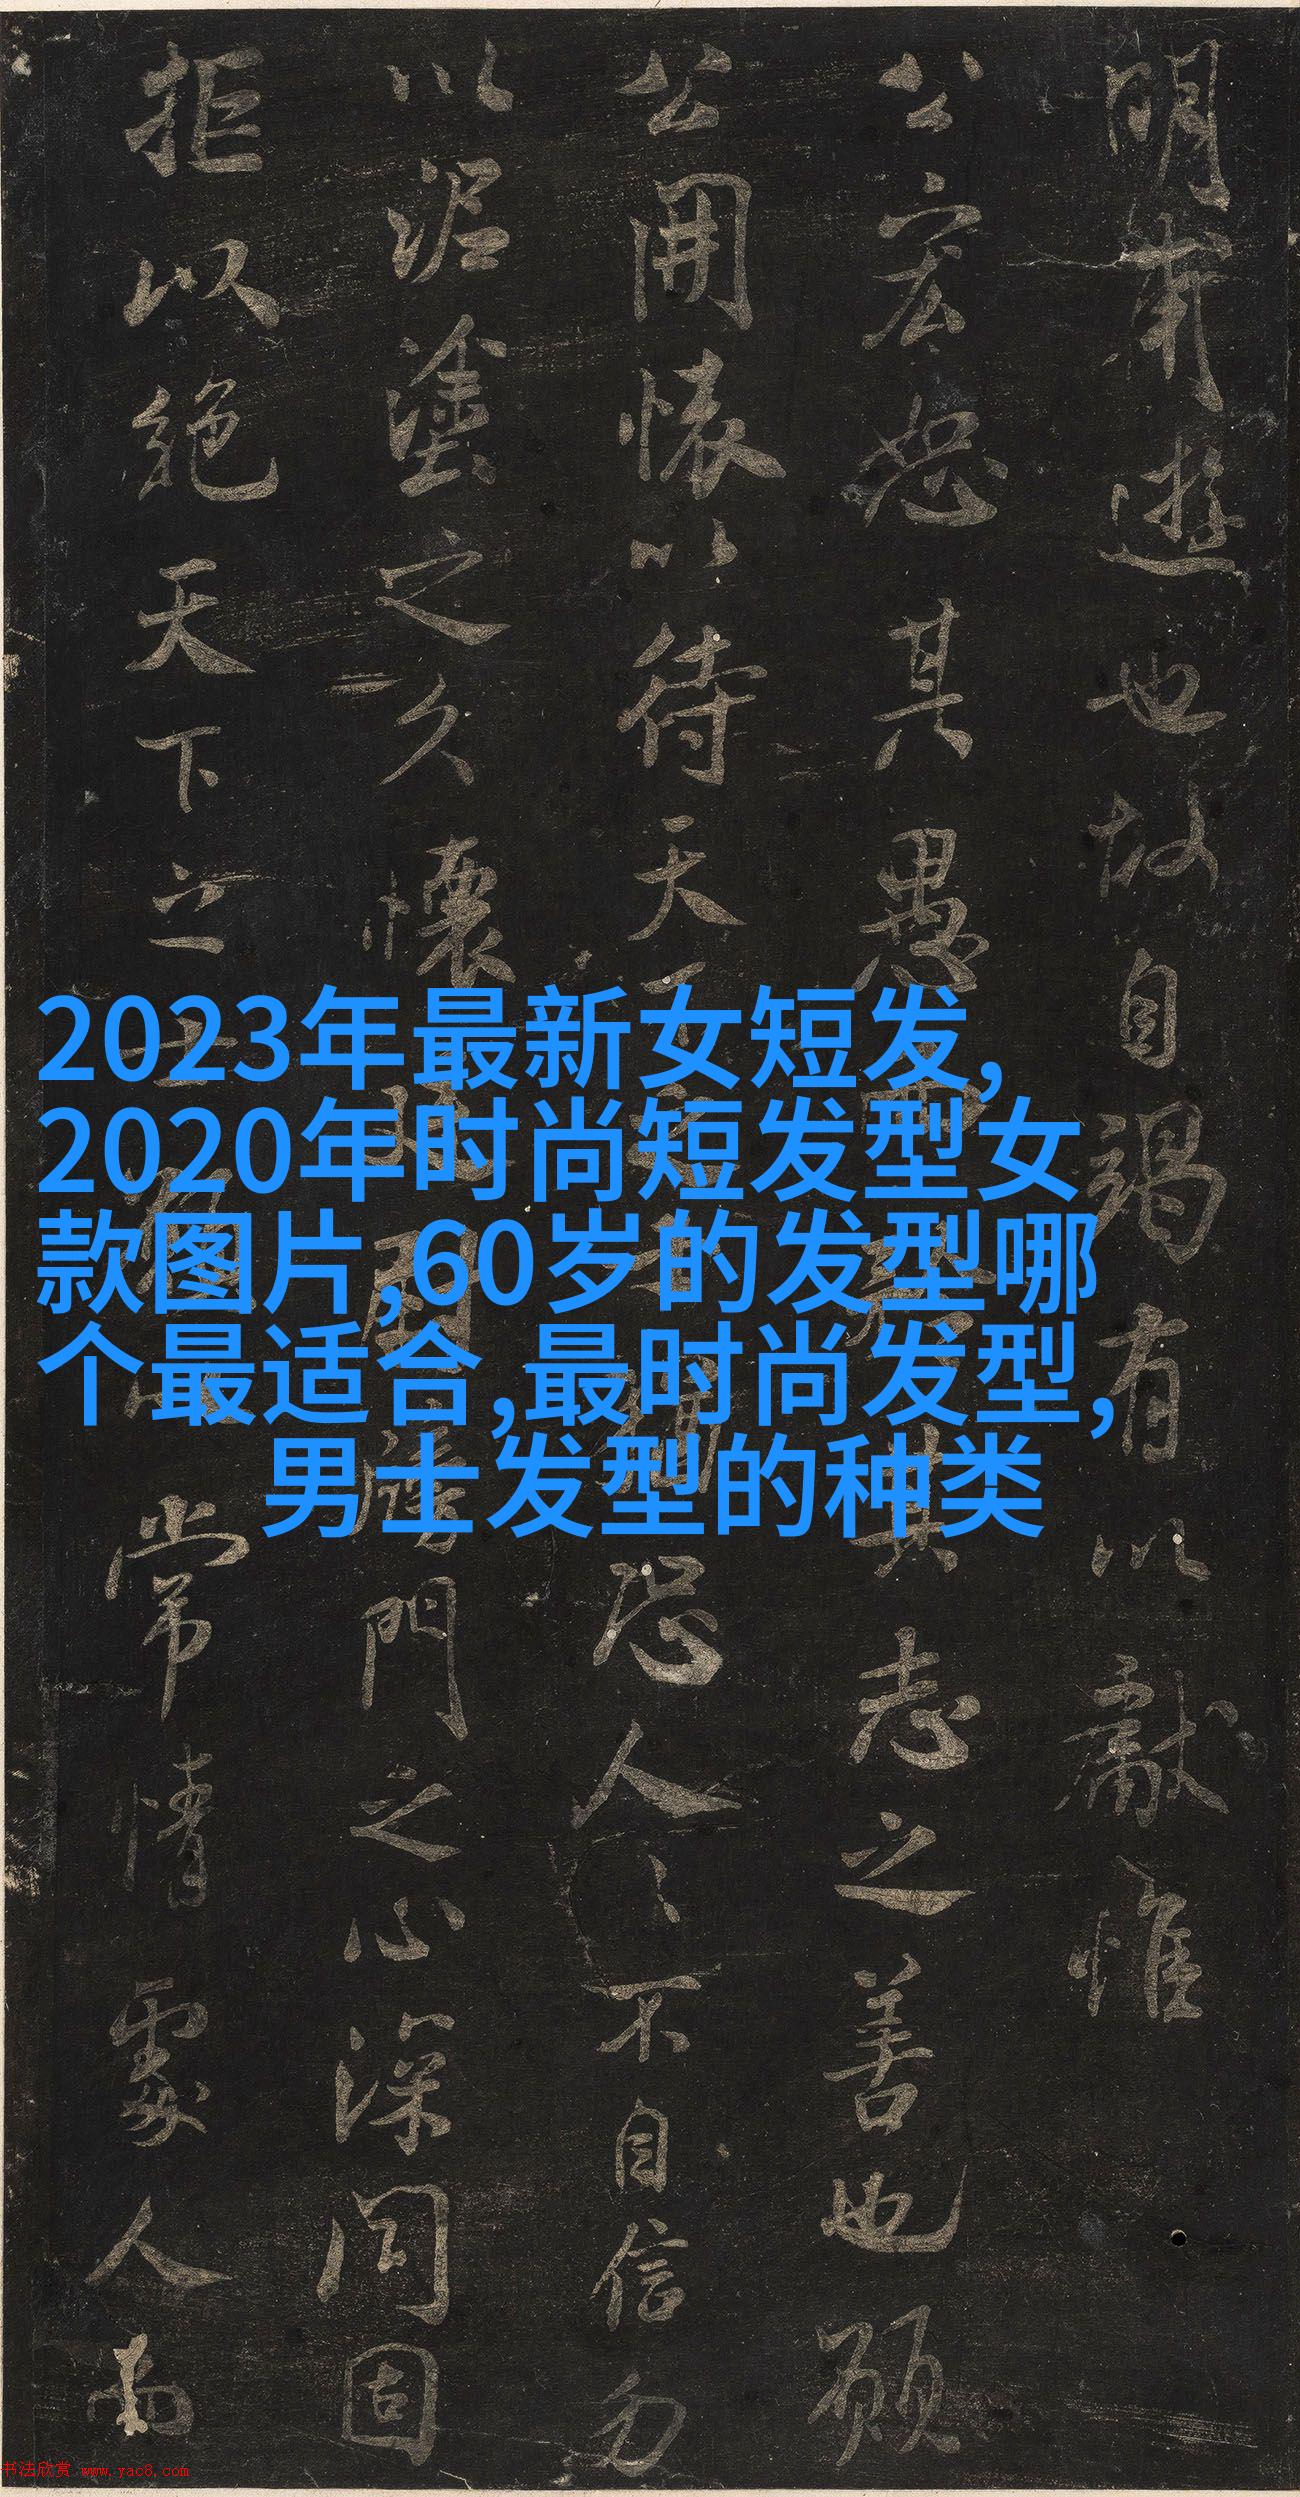 明甫遊也故自謁有以獻惟
公宏恕其愚
其志之善也願
公開懷以待天下
恐人人不自信勿
以泥塗之久懷
門之心深閉固
拒以絕天下之士
常情處人而
2023年最新女短发,
2020年时尚短发型女
款图片,60岁的发型哪
个最适合,最时尚发型,
男士发型的种类
书法欣赏 www.yac8.com